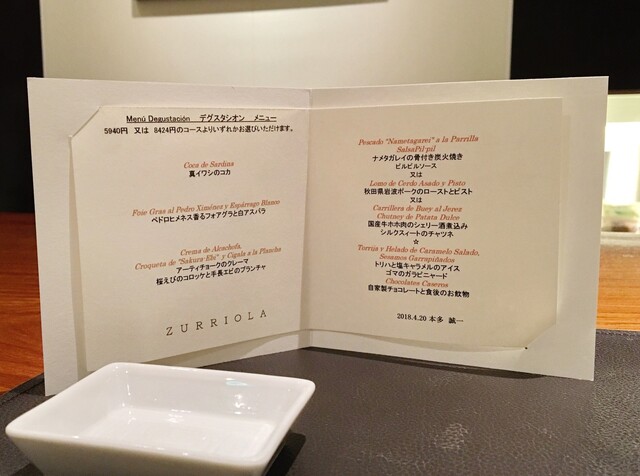 Menú Degustación デグスタシオン メニュー
5940円 又は 8424円のコースよりいずれかお選びいただけます。
Coca de Sardina
真イワシのコカ
Foie Gras al Pedro Ximénez y Espárrago Blanco
ペドロヒメネス香るフォアグラと白アスパラ
Crema de Alcachofa,
Croqueta de "Sakura Ebi" y Cigala a la Plancha
アーティチョークのクレーマ
桜えびのコロッケと手長エビのプランチャ
ZURRIOLA
Pescado "Nametagarei" a la Parrilla
SalsaPil-pil
ナメタガレイの骨付き炭火焼き
ピルピルソース
又は
Lomo de Cerdo Asado y Pisto
秋田県岩波ポークのローストとピスト
又は
Carrillera de Buey al Jerez
Chutney de Patata Dulce
国産牛ホホ肉のシェリー酒煮込み
シルクスィートのチャツネ
☆
Torrija y Helado de Caramelo Salado,
Sesamos Garrapiñados
トリハと塩キャラメルのアイス
ゴマのガラピニャード
Chocolates Caseros
自家製チョコレートと食後のお飲物
2018.4.20 本多 誠一